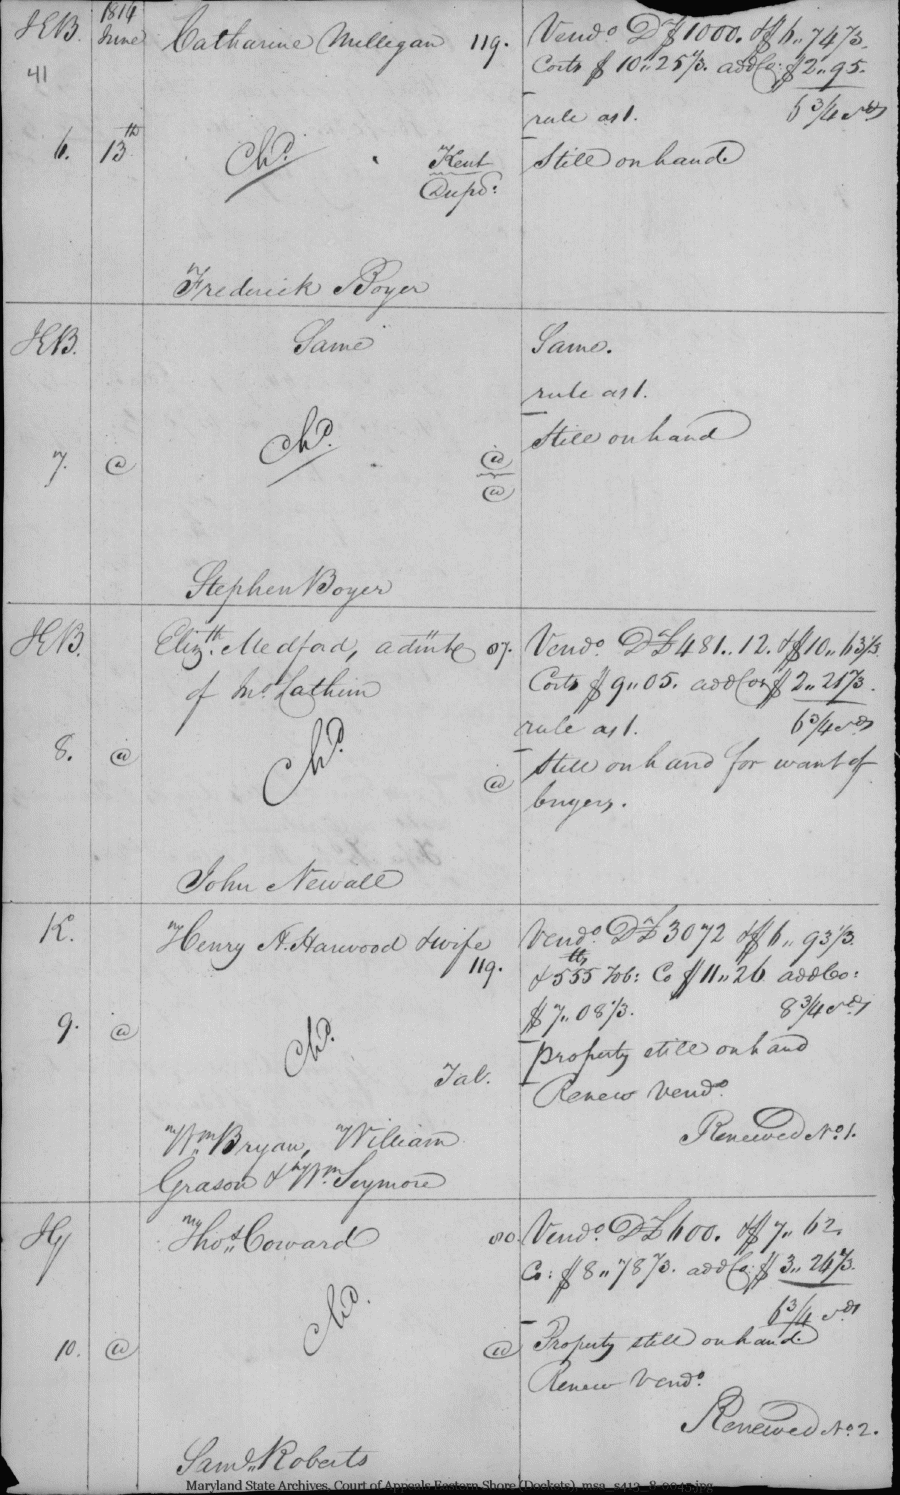 JEB. 1814 June Catharine Milligan 119. Vendo D$1000. & $6,, 74⅔.
41 Costs $10,,25⅓. add Co: $2,,95.
rule as 1. 6¾ sds
6. 13th Chd. Kent Still on hand.
Dupd:
Frederick Boyer
JEB. Same Same.
rule as 1.
Chd. Still on hand
7. @ @
@
Stephen Boyer
JEB. Elizth. Medford, admtx 87. Vendo. D£481,,12. & $10,,63⅓
of Ms. Cathim Costs $9,,05. add Cos $2,,21⅔.
rule as 1. 6¾ sds
8. @ Chd @ Still on hand for want of
buyers.
John Newall
K. Henry A. Harwood & wife Vendo. D£3072 & $6,, 93⅓.
119. & 555 lbs Tob: Co $11,,26 add Co:
$7,,08⅓. 8¾ sds
9. @ Chd. Property still on hand
Tal. Renew Vendo.
Wm. Bryan, William Renewed No. 1.
Grason & Wm. Seymore
Hy Thos. Coward 80. Vendo. D£600. & $7,, 62.
Co: $8,,78⅔. add Co: $3,,26⅔.
6¾ sds
10. @ Chd. @ Property still on hand.
Renew Vendo.
Renewed No. 2.
Saml. Roberts
Maryland State Archives, Court of Appeals Eastern Shore (Dockets), msa_s412_8-0043.jpg